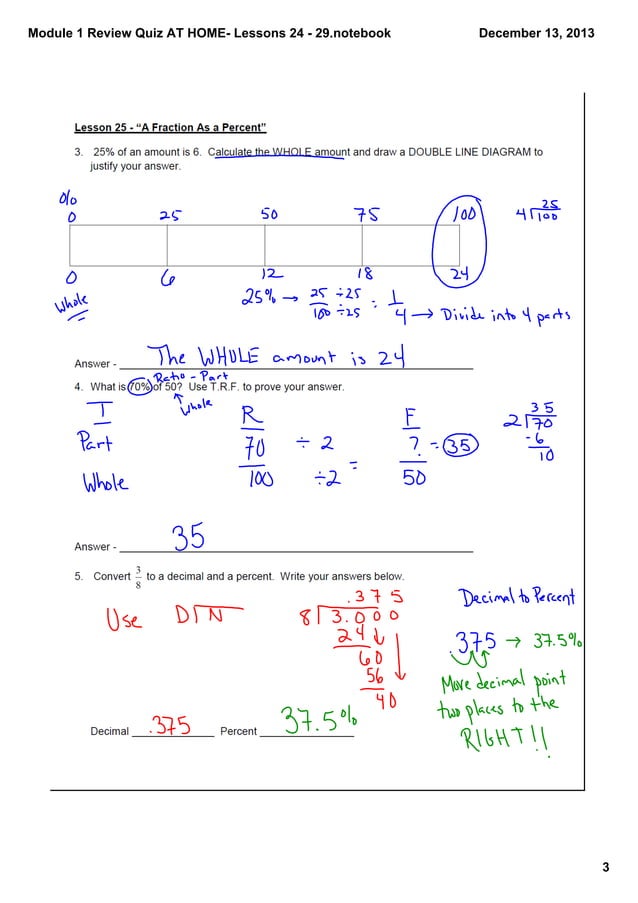 Module 1 Review Quiz AT HOME- Lessons 24 - 29.notebook December 13, 2013
Lesson 25 - “A Fraction As a Percent”
3. 25% of an amount is 6. Calculate the WHOLE amount and draw a DOUBLE LINE DIAGRAM to
justify your answer.
%
0 25 50 75 100
25
4 100
0 6 12 18 24
Whole
25% → 25 ÷25 = 1
100 ÷25 4 → Divide into 4 parts
Answer - The WHOLE amount is 24
Ratio - Part
4. What is 70% of 50? Use T.R.F. to prove your answer.
Whole
T R F
Part 70 ÷ 2 = ? = 35
Whole 100 ÷2 50
35
2 70
-6
10
Answer - 35
5. Convert 3/8 to a decimal and a percent. Write your answers below.
Use D N
.375
8 3.000
24
60
56
40
Decimal to Percent
.375 → 37.5%
Move decimal point
two places to the
RIGHT!!
Decimal .375 Percent 37.5%
3